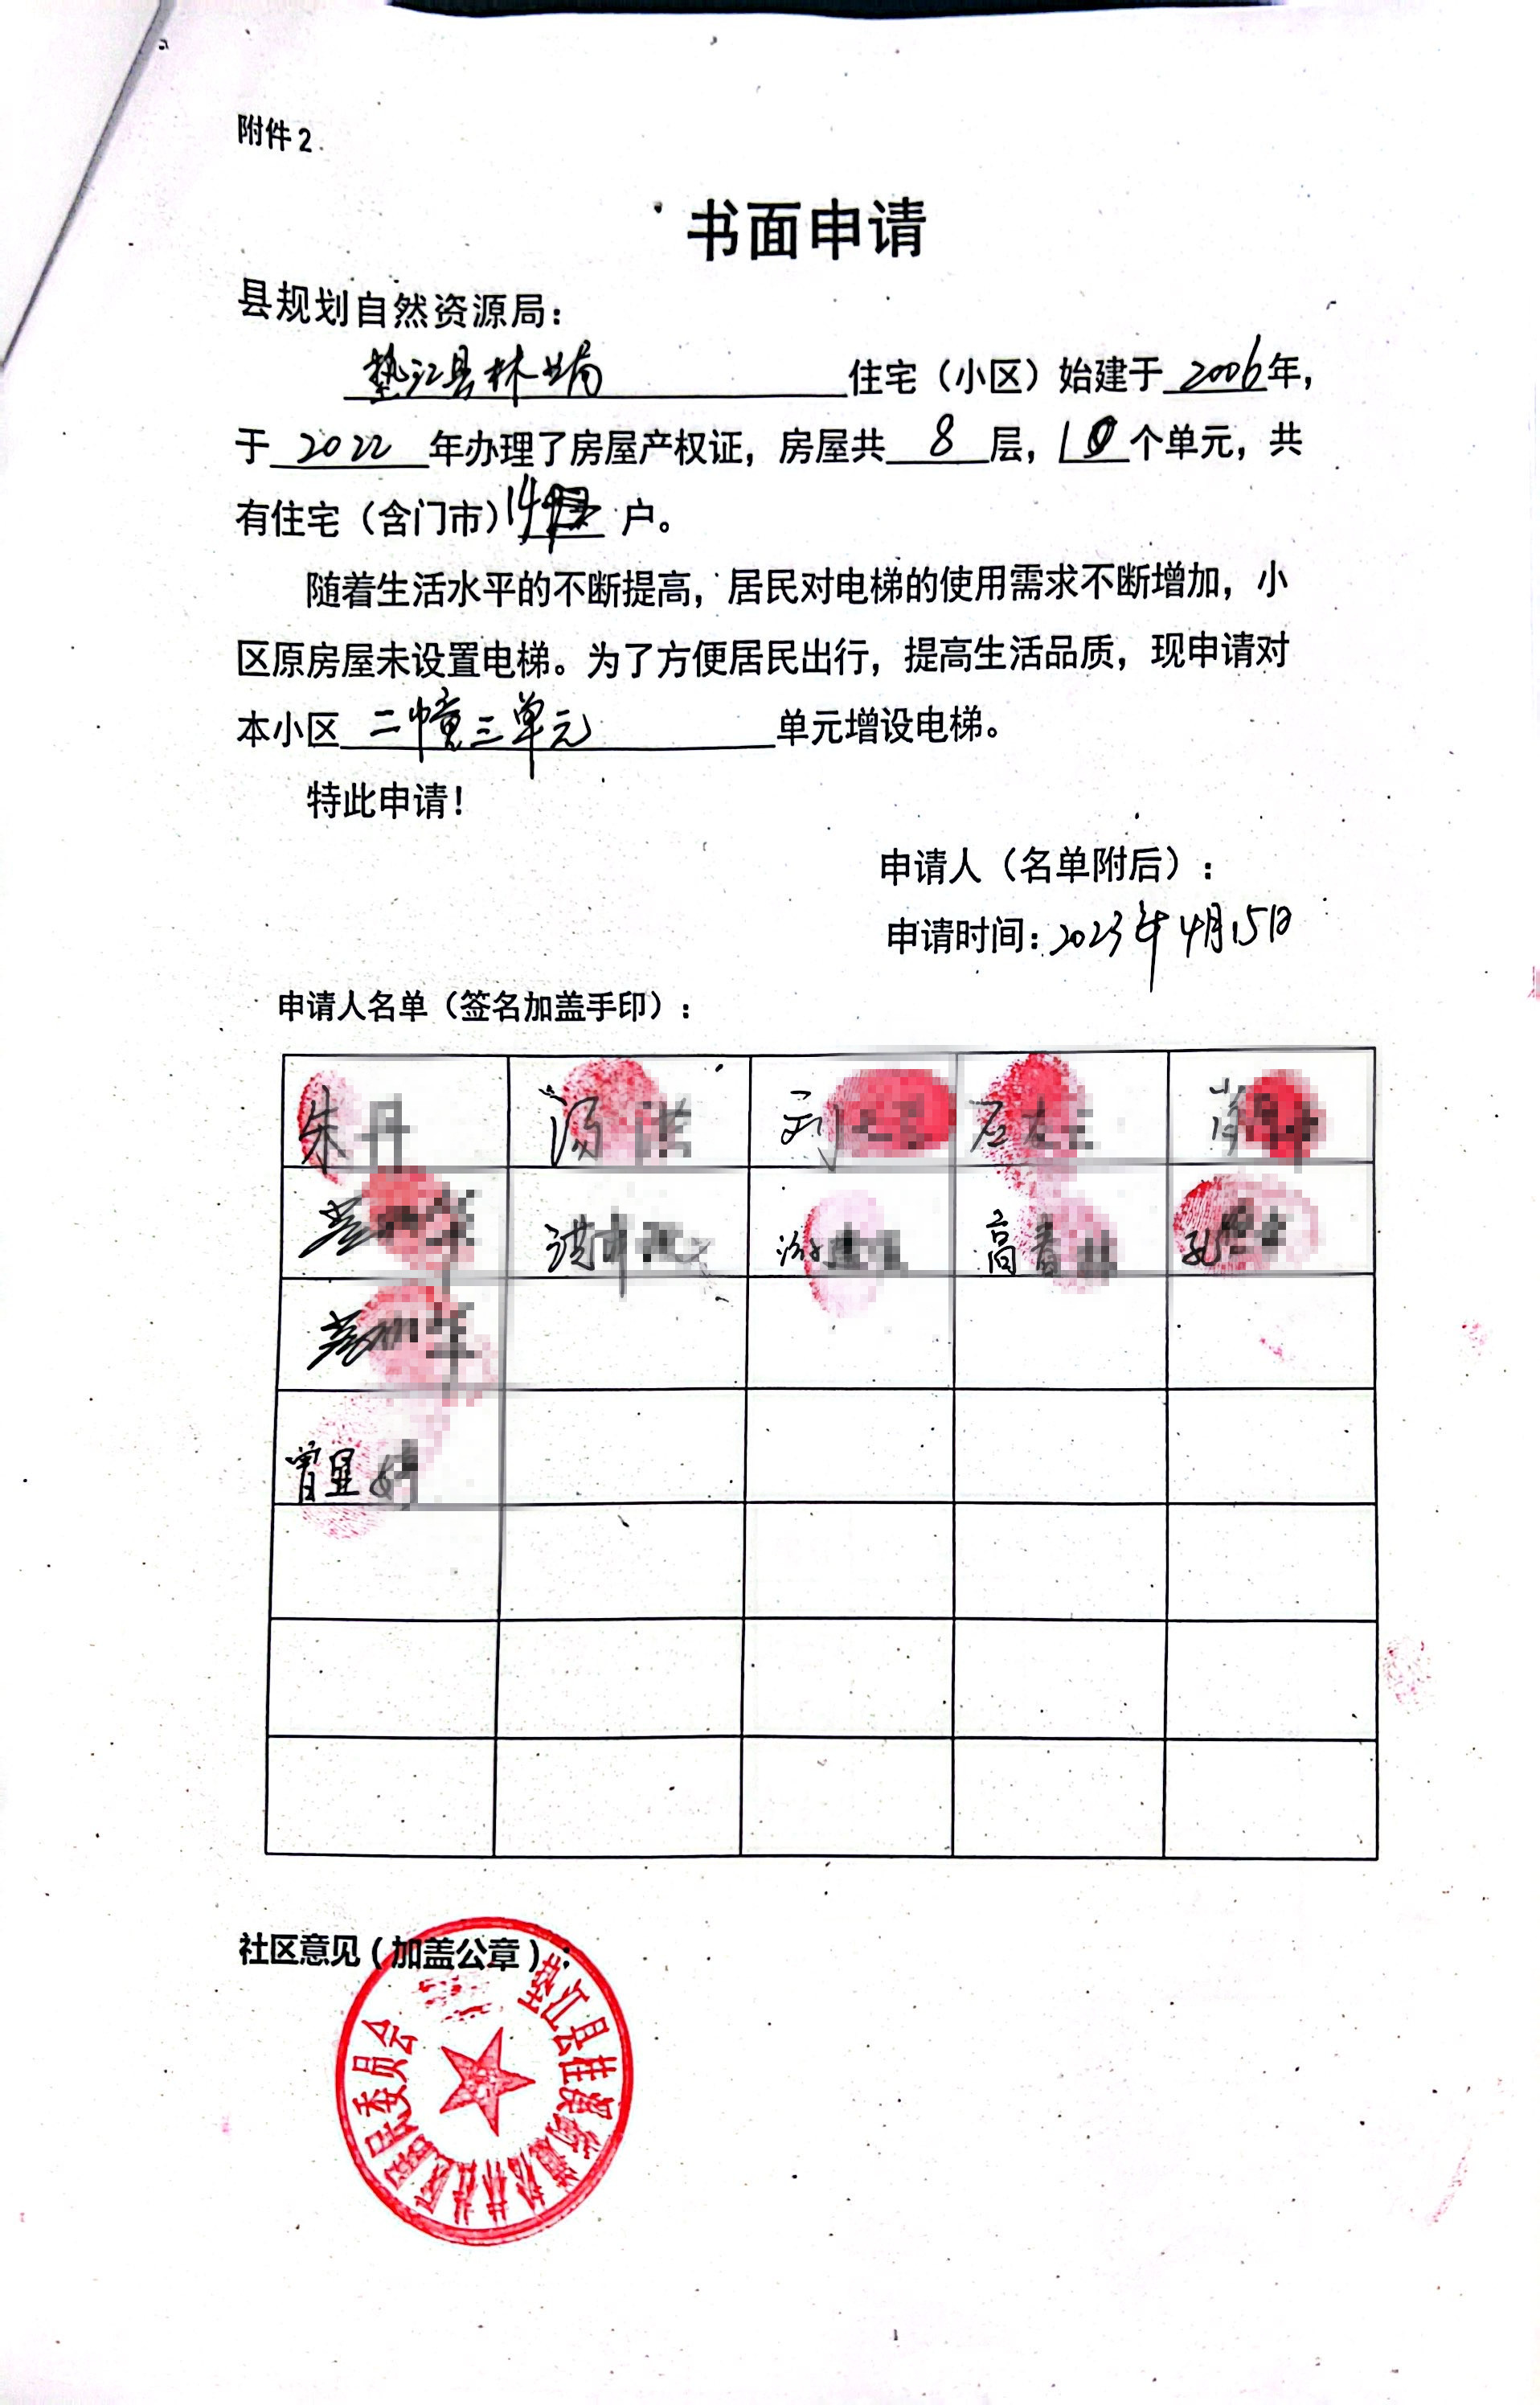 附件2
书面申请
县规划自然资源局：
垫江县林业局住宅（小区）始建于2006年，
于2022年办理了房屋产权证，房屋共8层，10个单元，共
有住宅（含门市）14户。
随着生活水平的不断提高，居民对电梯的使用需求不断增加，小
区原房屋未设置电梯。为了方便居民出行，提高生活品质，现申请对
本小区二幢三单元单元增设电梯。
特此申请！
申请人（名单附后）：
申请时间：2023年4月15日
申请人名单（签名加盖手印）：
朱丹
刘
高
孔
曾显
社区意见（加盖公章）：
垫江县桂溪街道松林社区居民委员会